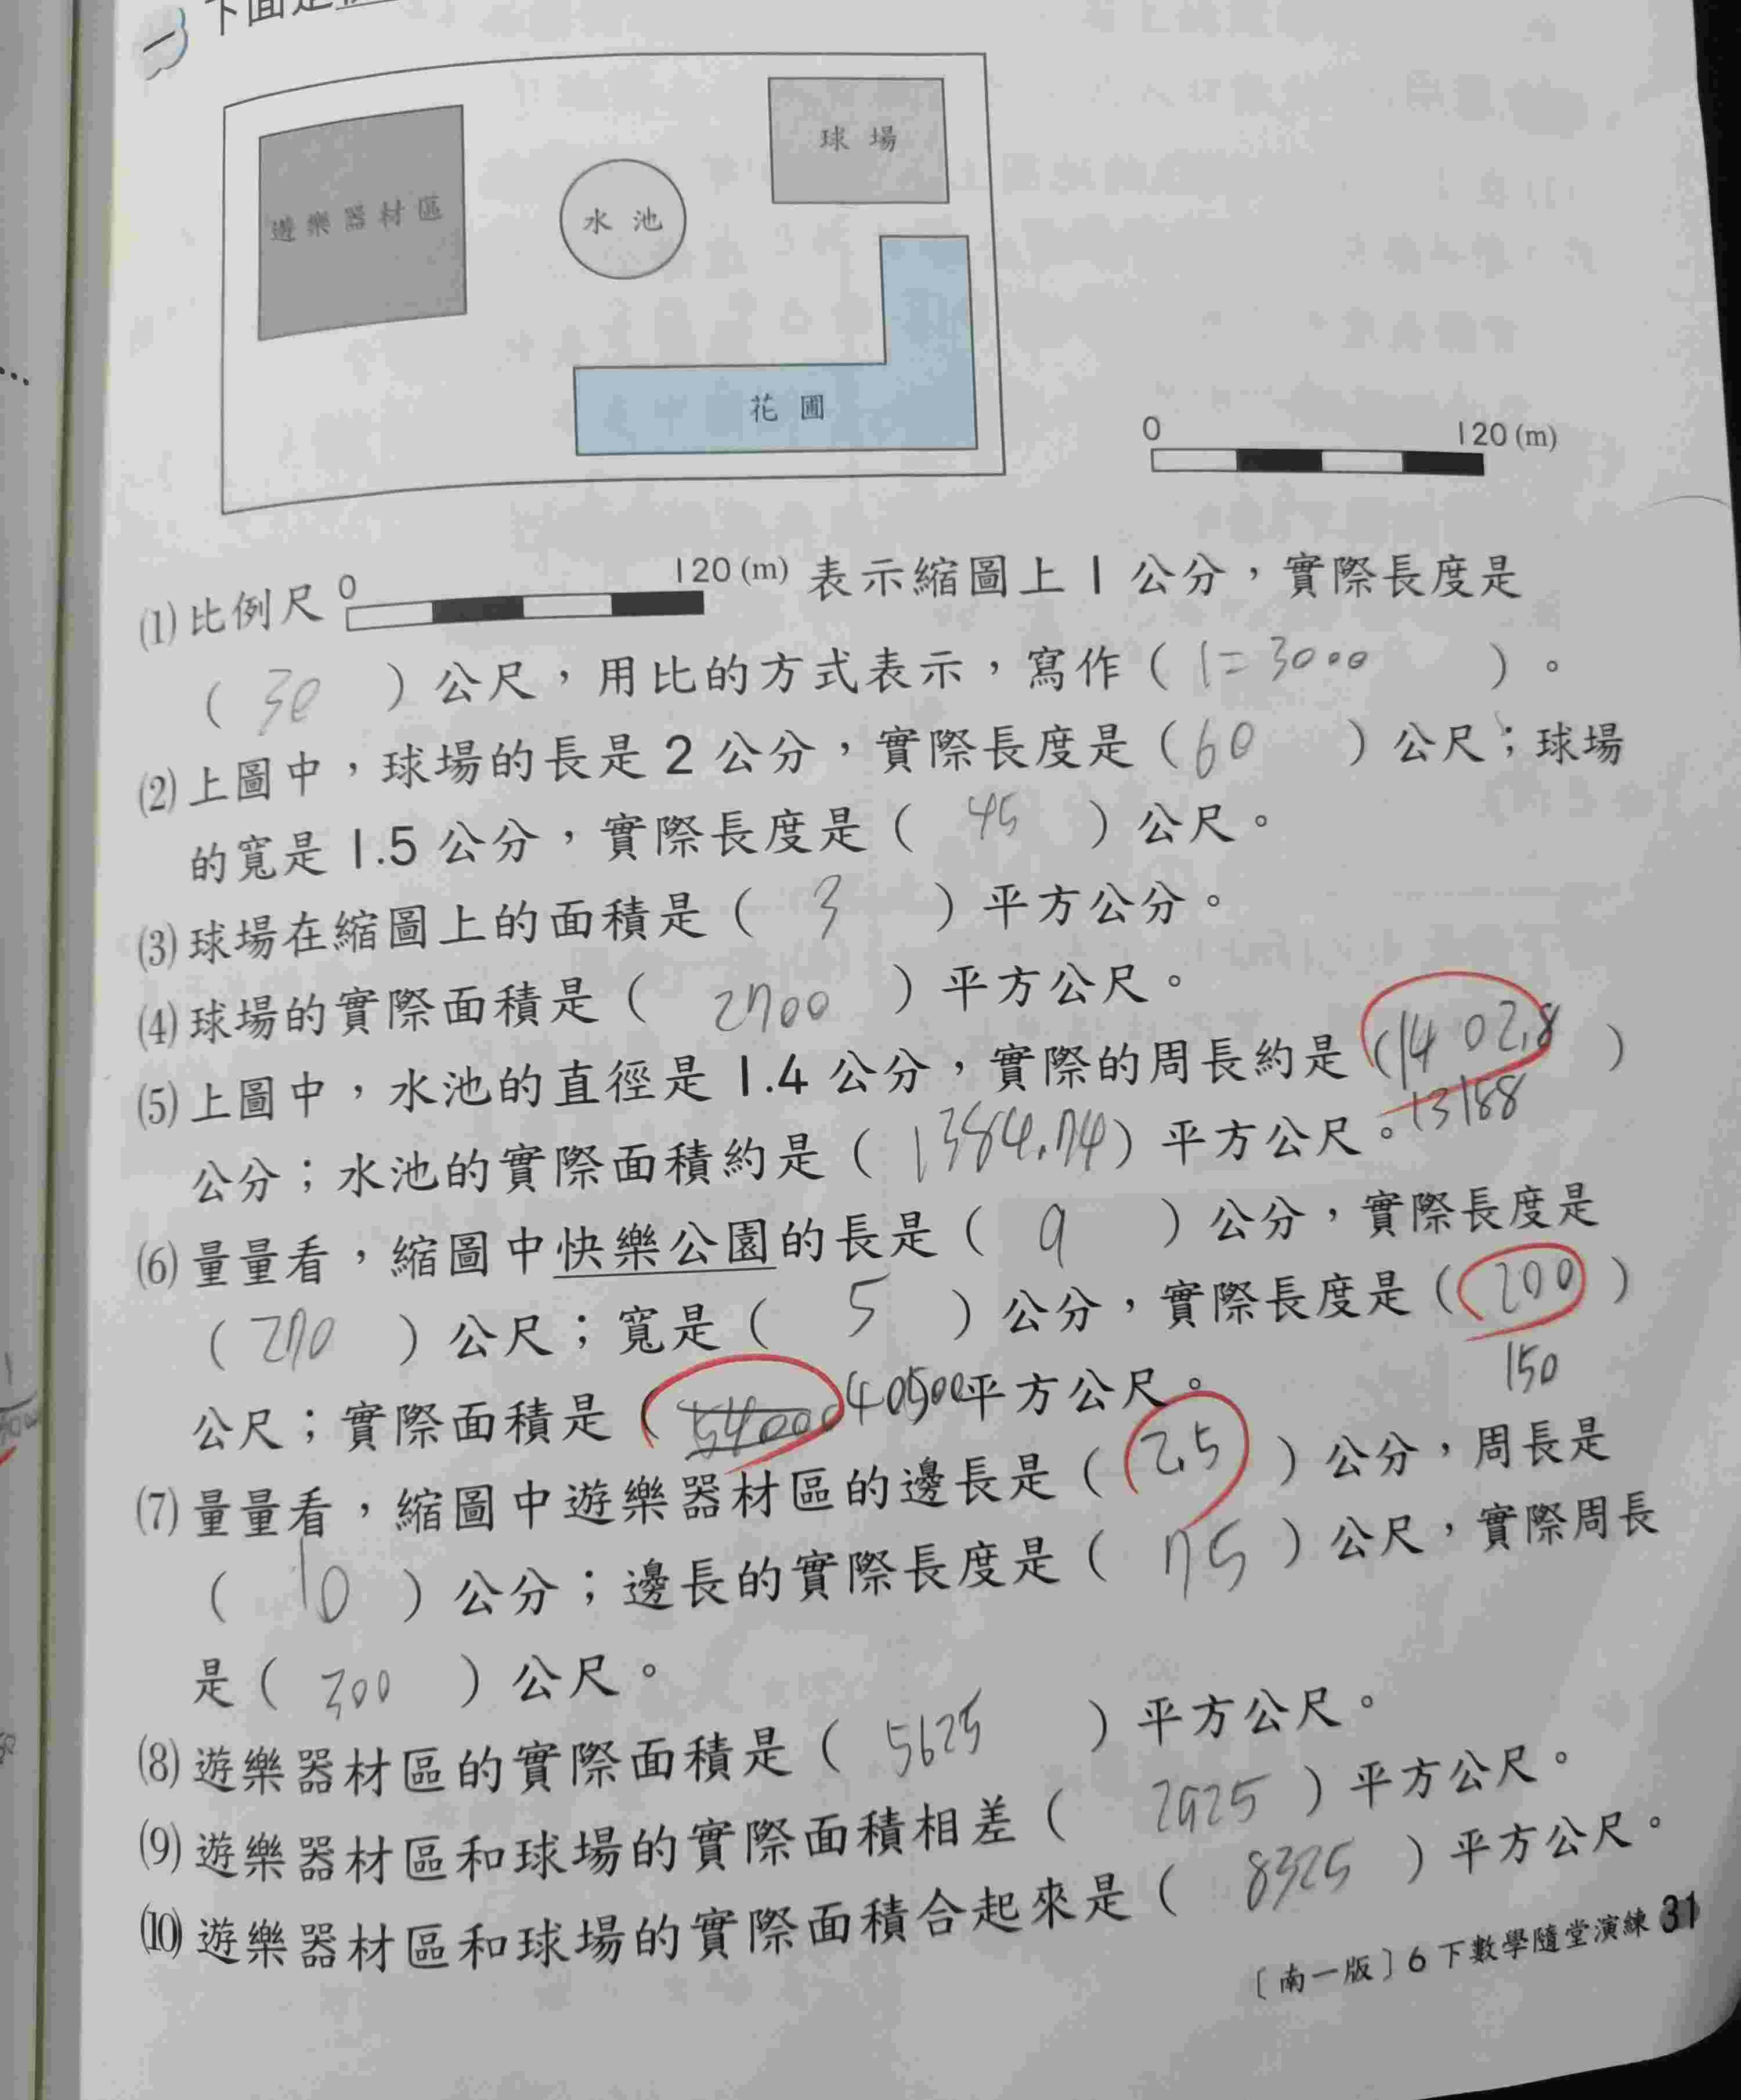 下面是
遊樂器材區
水池
球場
花圃
0 120(m)
⑴比例尺 0 120(m) 表示縮圖上1公分，實際長度是
（30）公尺，用比的方式表示，寫作（1=3000）。
⑵上圖中，球場的長是2公分，實際長度是（60）公尺；球場
的寬是1.5公分，實際長度是（45）公尺。
⑶球場在縮圖上的面積是（3）平方公分。
⑷球場的實際面積是（2700）平方公尺。
⑸上圖中，水池的直徑是1.4公分，實際的周長約是（1402.8）
13188
公分；水池的實際面積約是（1384.74）平方公尺。
⑹量量看，縮圖中快樂公園的長是（9）公分，實際長度是
（270）公尺；寬是（5）公分，實際長度是（200）
150
公尺；實際面積是（54000 40500平方公尺。
⑺量量看，縮圖中遊樂器材區的邊長是（2.5）公分，周長是
（10）公分；邊長的實際長度是（75）公尺，實際周長
是（300）公尺。
⑻遊樂器材區的實際面積是（5625）平方公尺。
⑼遊樂器材區和球場的實際面積相差（2925）平方公尺。
⑽遊樂器材區和球場的實際面積合起來是（8325）平方公尺。
〔南一版〕6下數學隨堂演練 31